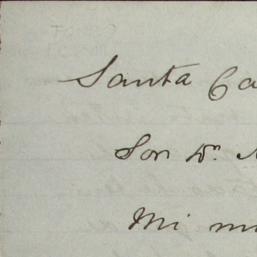 Santa Ca
Sor Dn.
Mi m